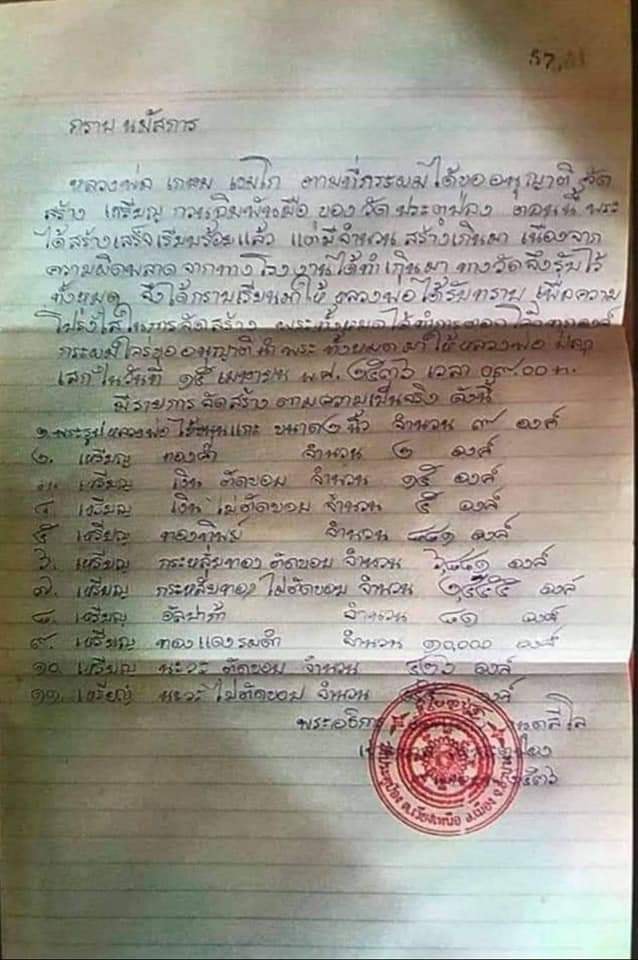 57,
กราบ นมัสการ
หลวงพ่อ เกษม เขมโก ตามที่กระผมได้ขออนุญาติ จัด
สร้าง เหรียญ กวนอิมพันมือ ของ วัด ประตูป่อง ตอนนี้ พระ
ได้สร้างเสร็จเรียบร้อยแล้ว แต่มีจำนวน สร้างเกินมา เนื่องจาก
ความผิดพลาด จากทางโรงงานได้ทำเกินมา ทางวัดจึงรับไว้
ทั้งหมด จึงได้กราบเรียนมาให้ หลวงพ่อ ได้รับทราบ เพื่อความ
โปร่งใสในการจัดสร้าง พระทั้งหมดได้ทำการตอกโค๊ตทุกองค์
กระผมใคร่ขออนุญาติ นำ พระ ทั้งหมด มาให้หลวงพ่อ
เสก ในวันที่ ๑๕ เมษายน พ.ศ. ๒๕๓๖ เวลา ๐๙.๐๐ น.
มีรายการ จัดสร้าง ตามความเป็นจริง ดังนี้
๑. พระรูปหลวงพ่อ ไม้ขนุนแกะ ขนาด ๒ นิ้ว จำนวน ๙ องค์
๒. เหรียญ ทองคำ จำนวน ๒ องค์
๓. เหรียญ เงิน ตัดขอบ จำนวน ๑๕ องค์
๔. เหรียญ เงิน ไม่ตัดขอบ จำนวน ๕ องค์
๕. เหรียญ ทองทิพย์ จำนวน ๔๔๑ องค์
๖. เหรียญ กระหลั่ยทอง ตัดขอบ จำนวน องค์
๗. เหรียญ กระหลั่ยทอง ไม่ตัดขอบ จำนวน องค์
๘. เหรียญ อัลปาก้า จำนวน ๔๑ องค์
๙. เหรียญ ทองแดงรมดำ จำนวน ๑๐,๐๐๐ องค์
๑๐. เหรียญ นะวะ ตัดขอบ จำนวน ๔๒๖ องค์
๑๑. เหรียญ นะวะ ไม่ตัดขอบ จำนวน องค์
พระอธิการ
๒๕๓๖
วัดประตูป่อง ต.เวียงเหนือ อ.เมือง จ.ลำปาง